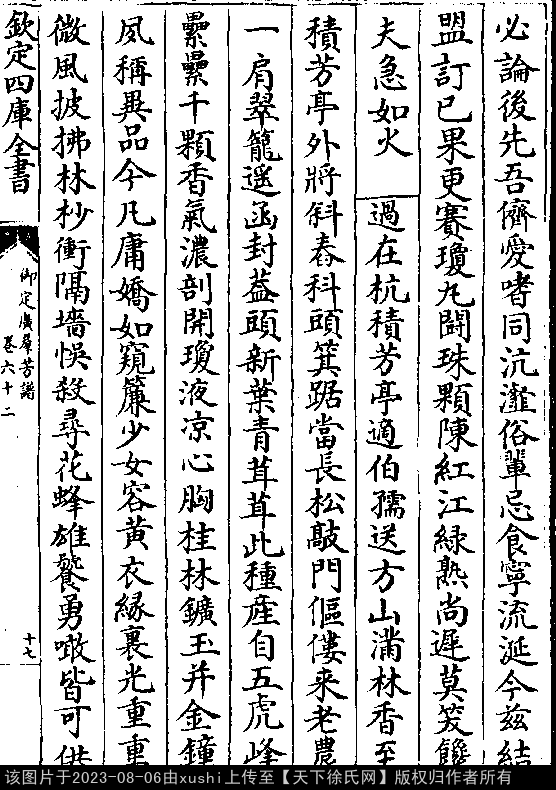 必論後先吾儕愛嗜同沆瀣俗輩忌食寧流涎今兹結
盟訂已果更賽瓊丸鬪珠顆陳紅江綠熟尚遲莫笑饞
夫急如火
過在杭積芳亭適伯孺送方山滿林香至
積芳亭外將斜舂科頭箕踞當長松敲門傴僂来老農
一肩翠籠遥函封葢頭新葉青茸茸此種産自五虎峰
纍纍千顆香氣濃剖開瓊液凉心胸桂林鑛玉并金鐘
夙稱異品今凡庸嬌如窺簾少女容黄衣緣裏光重重
微風披拂林杪衝隔墻悞殺尋花蜂雄饕勇噉皆可供
欽定四庫全書
御定廣羣芳譜
卷六十二
十七
该图片于2023-08-06由xushi上传至【天下徐氏网】版权归作者所有